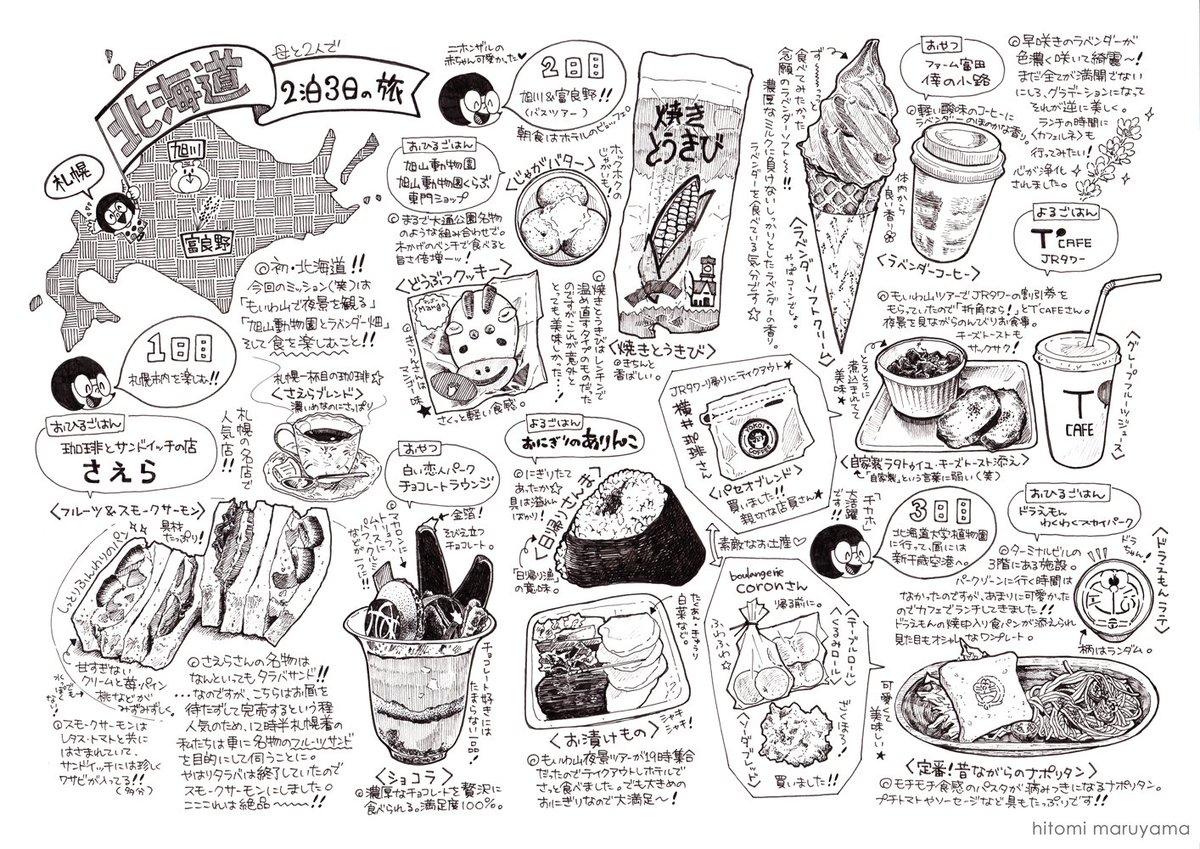 母と2人で
北海道
2泊3日の旅
札幌
旭川
富良野
◎初・北海道!!
今回のミッション(笑)は
「もいわ山で夜景を観る」
「旭山動物園とラベンダー畑」
そして食を楽しむこと!!
1日目
札幌市内を楽しむ!!
おひるごはん
珈琲とサンドイッチの店
さえら
札幌の名店で
人気店!!
札幌一杯目の珈琲☆
<さえらブレンド>
濃いめなのにさっぱり
<フルーツ&スモークサーモン>
具材
たっぷり!
しっとりふんわりパン
甘すぎない
クリームと苺・パイン
桃などが
みずみずしく。
◎スモークサーモンは
レタス・トマトと共に
はさまれていて、
サンドイッチには珍しく
ワサビが入ってる!!
(多分)
◎さえらさんの名物は
なんといってもタラバサンド!!
…なのですが、こちらはお昼を
待たずして完売するという程
人気のため、12時半札幌着の
私たちは更に名物のフルーツサンド
を目的にして伺うことに。
やはりタラバは終了していたので
スモークサーモンにしました。
こここれは絶品〜〜〜!!
おやつ
白い恋人パーク
チョコレートラウンジ
金箔!
そびえ立つ
チョコレート。
マカロンに
パムクーヘンに
などがトッピング!!
チョコレート好きには
たまらない一品!
<ショコラ>
◎濃厚なチョコレートを贅沢に
食べられる。満足度100%。
ニホンザルの
赤ちゃん可愛かった♥
2日目
旭川&富良野!!
(バスツアー)
朝食はホテルのビュッフェ。
おひるごはん
旭山動物園
旭山動物園くらぶ
東門ショップ
◎まるで大通公園名物
のような組み合わせで。
木かげのベンチで食べると
旨さ倍増ーッ!
<じゃがバター>
ホックホクの
じゃがいも。
<どうぶつクッキー>
Mango
きりんさんは
マンゴー味
さくっと軽い食感。
焼き
とうきび
<焼きとうきび>
◎きちんと
香ばしい。
◎焼きとうきびはレンチンで
温め直すタイプのものだった
のですが、これが意外と
とっても美味しかった…!
ずーーーっと
食べてみたかった
念願のラベンダーソフト〜!!
濃厚なミルクに負けないしっかりとしたラベンダーの香り。
ラベンダーを食べている気分です☆
<ラベンダーソフトクリーム>
やっぱコーンでしょ。
美味★
おやつ
ファーム富田
倖の小路
◎軽い酸味のコーヒーに
ラベンダーのほのかな香り。
体内から
良い香り
<ラベンダーコーヒー>
◎早咲きのラベンダーが
色濃く咲いて綺麗〜!
まだ全てが満開でない
にしろ、グラデーションになって
それが逆に美しく。
ランチの時間に
《カフェルネ》も
行ってみたい!
心が浄化
されました。
よるごはん
T'CAFE
JRタワー
◎もいわ山ツアーでJRタワーの割引券を
もらっていたので「折角なら!」とT'CAFEさん。
夜景を見ながらのんびりお食事。
チーズトーストも
サックサク!
とろとろに
煮込まれてて
<自家製ラタトゥイユ・チーズトースト添え>
「自家製」という言葉に弱い(笑)
T
CAFE
<グレープフルーツジュース>
よるごはん
おにぎりのありんこ
◎にぎりたて
あったか☆
具は溢れん
ばかり!
<日帰りまんさい>
「日帰り漁」
の意味。
たくあん・きゅうり
白菜など。
シャキ
シャキ!
<お漬けもの>
◎もいわ山夜景ツアーが19時集合
だったのでテイクアウトしホテルで
さっと食べました。でも大きめの
おにぎりなので大満足〜!
JRタワー帰りにテイクアウト★
横井珈琲さん
YOKOI
COFFEE
<パセオブレンド>
買いました!!
親切な店員さん
素敵なお土産♡
boulangerie
coronさん
帰る前に。
ふわふわ☆
<テーブルロール>
<くるみロール>
ざくほろ!
買いました!
3日目
北海道大学植物園
に行って、昼には
新千歳空港へ。
「チカホ」
大活躍
です!!
おひるごはん
ドラえもん
わくわくスカイパーク
◎ターミナルビルの
3階にある施設。
パークゾーンに行く時間は
なかったのですが、あまりに可愛かった
のでカフェでランチしてきました!!
ドラえもんの焼印入り食パンが添えられ
見た目もオシャレなワンプレート。
ドラ
ちゃん!
<ドラえもんラテ>
柄はランダム。
可愛くて
美味しい★
<定番!昔ながらのナポリタン>
◎モチモチ食感のパスタが病みつきになるナポリタン。
プチトマトやソーセージなど具もたっぷりです!!
hitomi maruyama